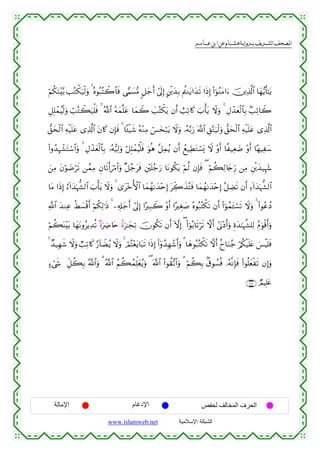 المصحف الشريف برواية هشام عن ابن عامر
يَٰٓأَيُّهَا ٱلَّذِينَ ءَامَنُوٓا۟ إِذَا تَدَايَنتُم بِدَيْنٍ إِلَىٰٓ أَجَلٍ مُّسَمًّى فَٱكْتُبُوهُ ۚ وَلْيَكْتُب بَّيْنَكُمْ
كَاتِبٌۢ بِٱلْعَدْلِ ۚ وَلَا يَأْبَ كَاتِبٌ أَن يَكْتُبَ كَمَا عَلَّمَهُ ٱللَّهُ ۚ فَلْيَكْتُبْ وَلْيُمْلِلِ
ٱلَّذِى عَلَيْهِ ٱلْحَقُّ وَلْيَتَّقِ ٱللَّهَ رَبَّهُۥ وَلَا يَبْخَسْ مِنْهُ شَيْـًٔا ۚ فَإِن كَانَ ٱلَّذِى عَلَيْهِ ٱلْحَقُّ
سَفِيهًا أَوْ ضَعِيفًا أَوْ لَا يَسْتَطِيعُ أَن يُمِلَّ هُوَ فَلْيُمْلِلْ وَلِيُّهُۥ بِٱلْعَدْلِ ۚ وَٱسْتَشْهِدُوا۟
شَهِيدَيْنِ مِن رِّجَالِكُمْ ۖ فَإِن لَّمْ يَكُونَا رَجُلَيْنِ فَرَجُلٌ وَٱمْرَأَتَانِ مِمَّن تَرْضَوْنَ مِنَ
ٱلشُّهَدَآءِ أَن تَضِلَّ إِحْدَىٰهُمَا فَتُذَكِّرَ إِحْدَىٰهُمَا ٱلْأُخْرَىٰ ۚ وَلَا يَأْبَ ٱلشُّهَدَآءُ إِذَا مَا
دُعُوا۟ ۚ وَلَا تَسْـَٔمُوٓا۟ أَن تَكْتُبُوهُ صَغِيرًا أَوْ كَبِيرًا إِلَىٰٓ أَجَلِهِۦ ۚ ذَٰلِكُمْ أَقْسَطُ عِندَ ٱللَّهِ
وَأَقْوَمُ لِلشَّهَٰدَةِ وَأَدْنَىٰٓ أَلَّا تَرْتَابُوٓا۟ ۖ إِلَّآ أَن تَكُونَ تِجَٰرَةٌ حَاضِرَةٌ تُدِيرُونَهَا بَيْنَكُمْ
فَلَيْسَ عَلَيْكُمْ جُنَاحٌ أَلَّا تَكْتُبُوهَا ۗ وَأَشْهِدُوٓا۟ إِذَا تَبَايَعْتُمْ ۚ وَلَا يُضَآرَّ كَاتِبٌ وَلَا شَهِيدٌ ۚ
وَإِن تَفْعَلُوا۟ فَإِنَّهُۥ فُسُوقٌۢ بِكُمْ ۗ وَٱتَّقُوا۟ ٱللَّهَ ۖ وَيُعَلِّمُكُمُ ٱللَّهُ ۗ وَٱللَّهُ بِكُلِّ شَىْءٍ
عَلِيمٌ ۝
الحرف المخالف لحفص الإدغام الإمالة
www.islamweb.net الشبكة الإسلامية